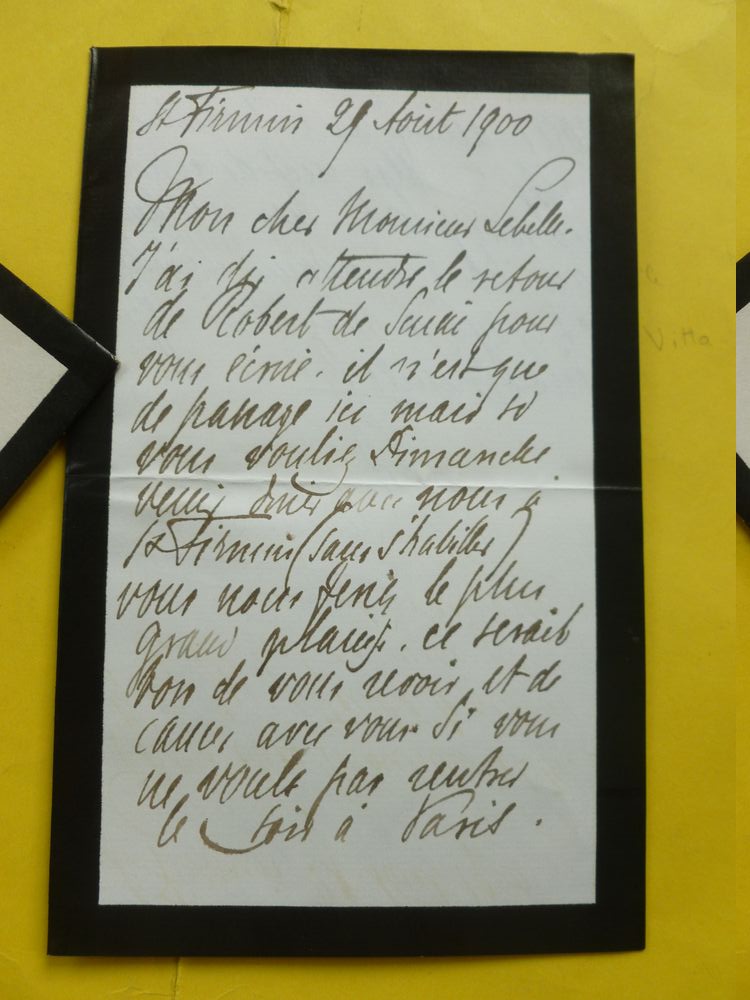 St Firmin 29 Août 1900
Mon cher Monsieur Lebelle.
J'ai dû attendre le retour
de Robert de pour
vous écrire. il n'est que
de passage ici mais si
vous vouliez Dimanche
venir diner avec nous à
St Firmin (sans s'habiller)
vous nous feriez le plus
grand plaisir. ce serait
bon de vous revoir, et de
causer avec vous. Si vous
ne voulez pas rentrer
le soir à Paris.
Vitta